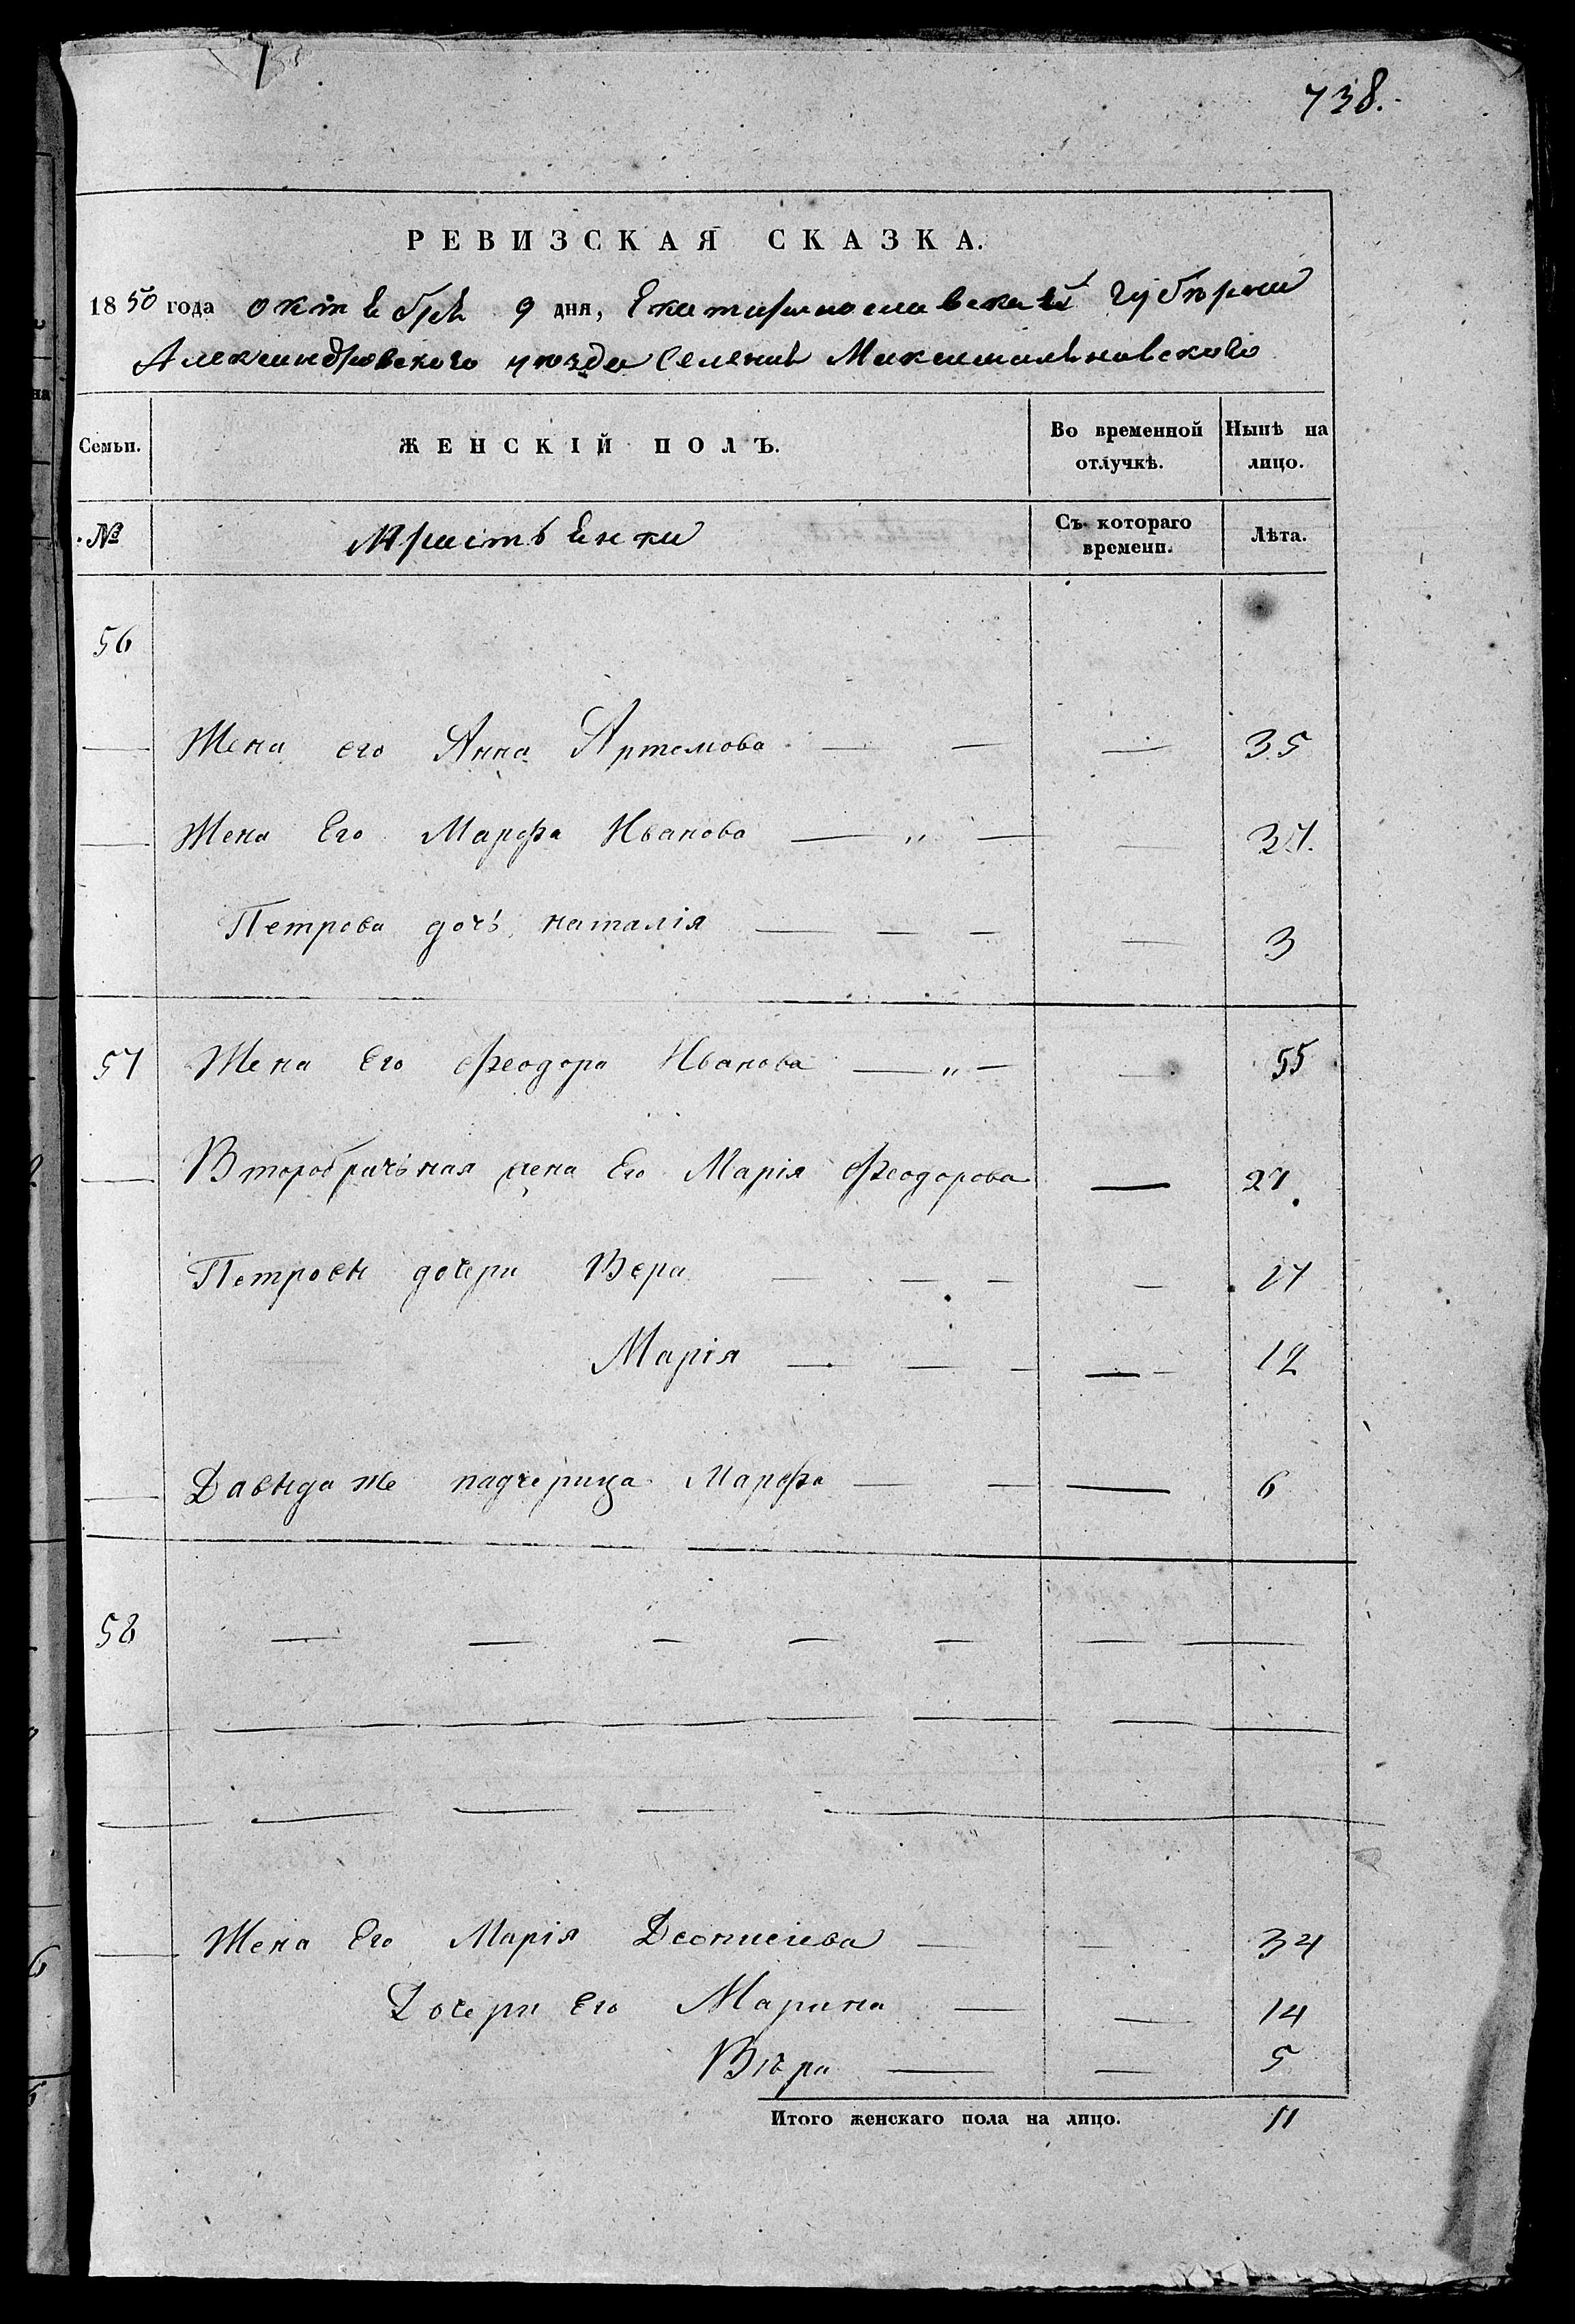 738.
РЕВИЗСКАЯ СКАЗКА.
1850 года октебре 9 дня, Екатеринославской губернии
Александровского уезда Селение Максимильяновского
Семьи. ЖЕНСКІЙ ПОЛЪ. Во временной отлучкѣ. Нынѣ на лицо.
№ Христьенки Съ котораго времени. Лѣта.
56
— Жена его Анна Артемова — — — 35
— Жена Его Марфа Иванова — „ — — 37.
Петрова дочь наталія — — — — 3
57 Жена Его Феодора Иванова — „ — — 55
— Второбрачьная жена Его Марія Феодорова — 27
Петровы дочери Вера — — — — 17
Марія — — — — 12
— Давыда же падчерица Марфа — — — 6
58 — — — — — — —
— — — — — —
— — — — —
— Жена Его Марія Деонисіева — — 34
Дочери Его Марина — — 14
Вѣра — — 5
Итого женскаго пола на лицо. 11